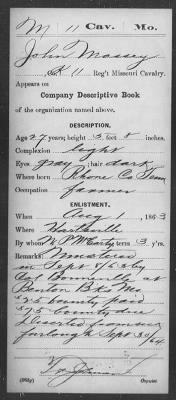 M 11 Cav. Mo.
John Massey
, K 11 Reg't Missouri Cavalry.
Appears on
Company Descriptive Book
of the organization named above.
DESCRIPTION.
Age 27 years; height 5 feet 8 inches.
Complexion light
Eyes gray; hair dark
Where born Rhone Co Tenn
Occupation farmer
ENLISTMENT.
When Aug 1, 1863
Where Hartville
By whom term 3 y'rs.
Remarks: Mustered
in Sept 8/63 by
at
Benton Bks Mo
$25 bounty paid
$75 bounty due
Deserted from
furlough Sept 30/64
Copyist.